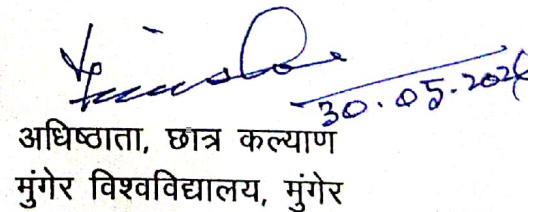 30.05.202
अधिष्ठाता, छात्र कल्याण
मुंगेर विश्वविद्यालय, मुंगेर